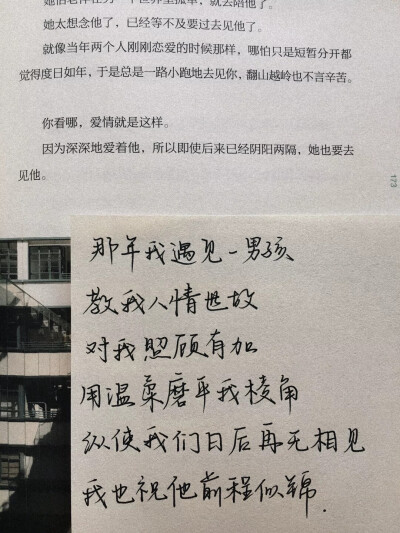 她太想念他了，已经等不及要过去见他了。
就像当年两个人刚刚恋爱的时候那样，哪怕只是短暂分开都
觉得度日如年，于是总是一路小跑地去见你，翻山越岭也不言辛苦。
你看哪，爱情就是这样。
因为深深地爱着他，所以即使后来已经阴阳两隔，她也要去
见他。
173
那年我遇见一男孩
教我人情世故
对我照顾有加
用温柔磨平我棱角
纵使我们日后再无相见
我也祝他前程似锦.